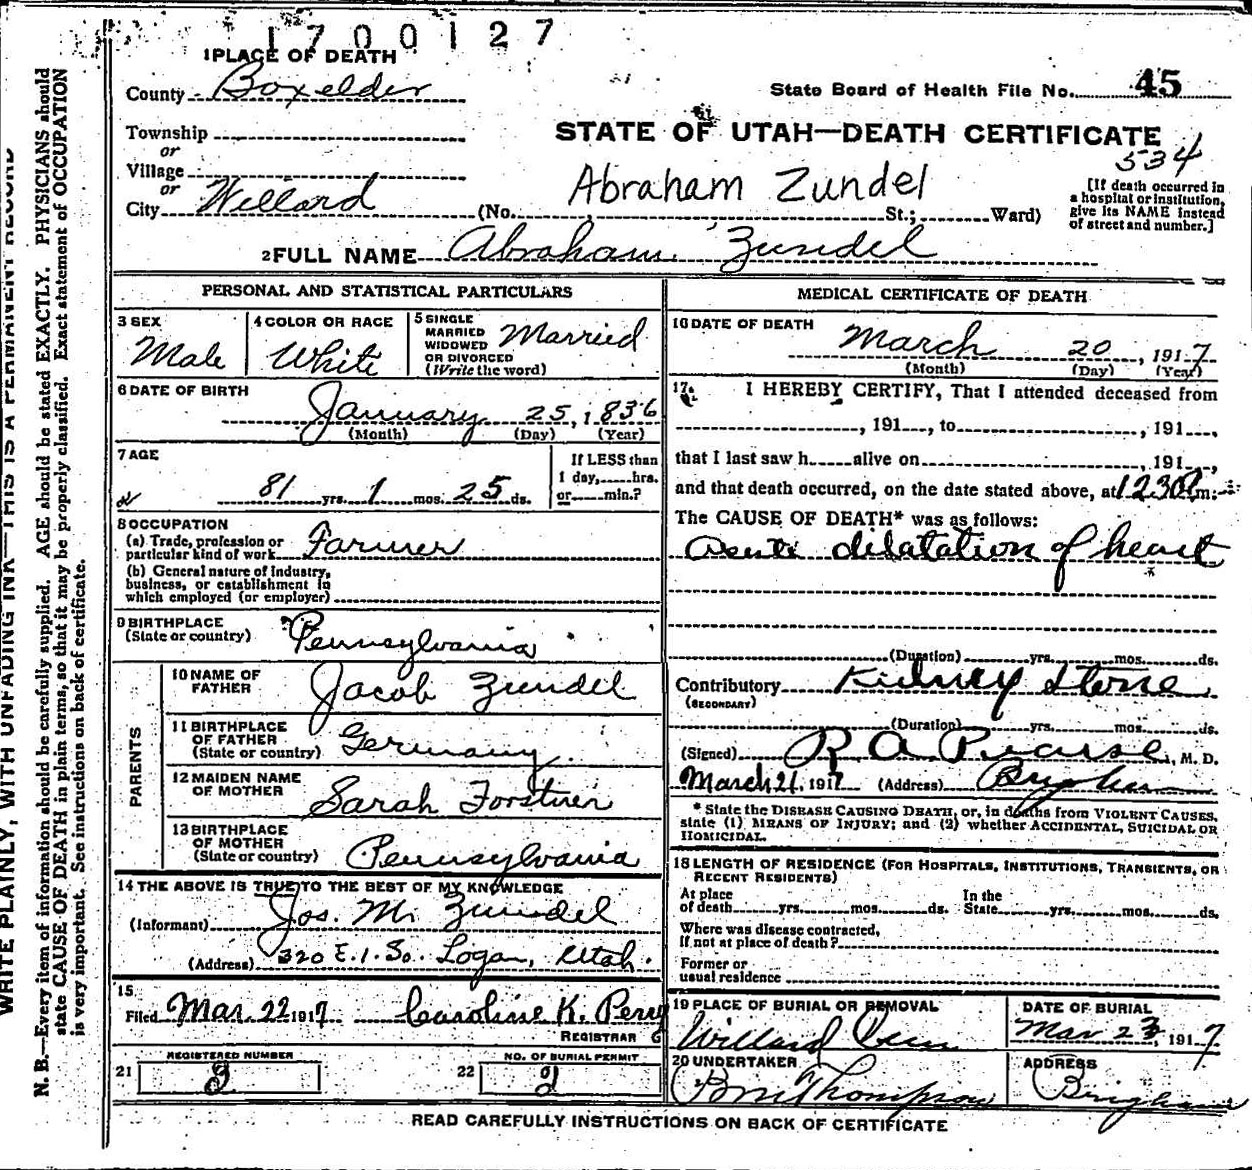 1700127
1 PLACE OF DEATH
County Boxelder
State Board of Health File No. 45
Township
or
Village
or
City Willard
STATE OF UTAH—DEATH CERTIFICATE
534
Abraham Zundel
(No. St.; Ward)
[If death occurred in
a hospital or institution,
give its NAME instead
of street and number.]
2 FULL NAME Abraham Zundel
PERSONAL AND STATISTICAL PARTICULARS
3 SEX
Male
4 COLOR OR RACE
White
5 SINGLE
MARRIED
WIDOWED
OR DIVORCED
(Write the word)
Married
6 DATE OF BIRTH
January 25, 1836
(Month) (Day) (Year)
7 AGE
81 yrs. 1 mos. 25 ds.
If LESS than
1 day, hrs.
or min.?
8 OCCUPATION
(a) Trade, profession or
particular kind of work Farmer
(b) General nature of Industry,
business, or establishment in
which employed (or employer)
9 BIRTHPLACE
(State or country) Pennsylvania
PARENTS
10 NAME OF
FATHER Jacob Zundel
11 BIRTHPLACE
OF FATHER
(State or country) Germany
12 MAIDEN NAME
OF MOTHER Sarah Forstner
13 BIRTHPLACE
OF MOTHER
(State or country) Pennsylvania
14 THE ABOVE IS TRUE TO THE BEST OF MY KNOWLEDGE
(Informant) Jos. M. Zundel
(Address) 320 E. 1. So. Logan, Utah.
15
Filed Mar. 22 1917 Caroline K. Perry
REGISTRAR
REGISTERED NUMBER
21
NO. OF BURIAL PERMIT
22
MEDICAL CERTIFICATE OF DEATH
16 DATE OF DEATH
March 20, 1917
(Month) (Day) (Year)
17 I HEREBY CERTIFY, That I attended deceased from
, 191 , to , 191 ,
that I last saw h alive on , 191 ,
and that death occurred, on the date stated above, at 1230 m.
The CAUSE OF DEATH* was as follows:
Acute dilatation of heart
(Duration) yrs. mos. ds.
Contributory Kidney Stone
(SECONDARY)
(Duration) yrs. mos. ds.
(Signed) R. A. Pearse, M. D.
March 21, 1917 (Address) Brigham
* State the DISEASE CAUSING DEATH, or, in deaths from VIOLENT CAUSES,
state (1) MEANS OF INJURY; and (2) whether ACCIDENTAL, SUICIDAL OR
HOMICIDAL.
18 LENGTH OF RESIDENCE (FOR HOSPITALS, INSTITUTIONS, TRANSIENTS, OR
RECENT RESIDENTS)
At place
of death yrs. mos. ds.
In the
State yrs. mos. ds.
Where was disease contracted,
If not at place of death?
Former or
usual residence
19 PLACE OF BURIAL OR REMOVAL
Willard Cem
DATE OF BURIAL
Mar 23, 1917
20 UNDERTAKER
Thompson
ADDRESS
Brigham
READ CAREFULLY INSTRUCTIONS ON BACK OF CERTIFICATE
WRITE PLAINLY, WITH UNFADING INK—THIS IS A PERMANENT RECORD
N. B.—Every item of information should be carefully supplied. AGE should be stated EXACTLY. PHYSICIANS should
state CAUSE OF DEATH in plain terms, so that it may be properly classified. Exact statement of OCCUPATION
is very important. See instructions on back of certificate.